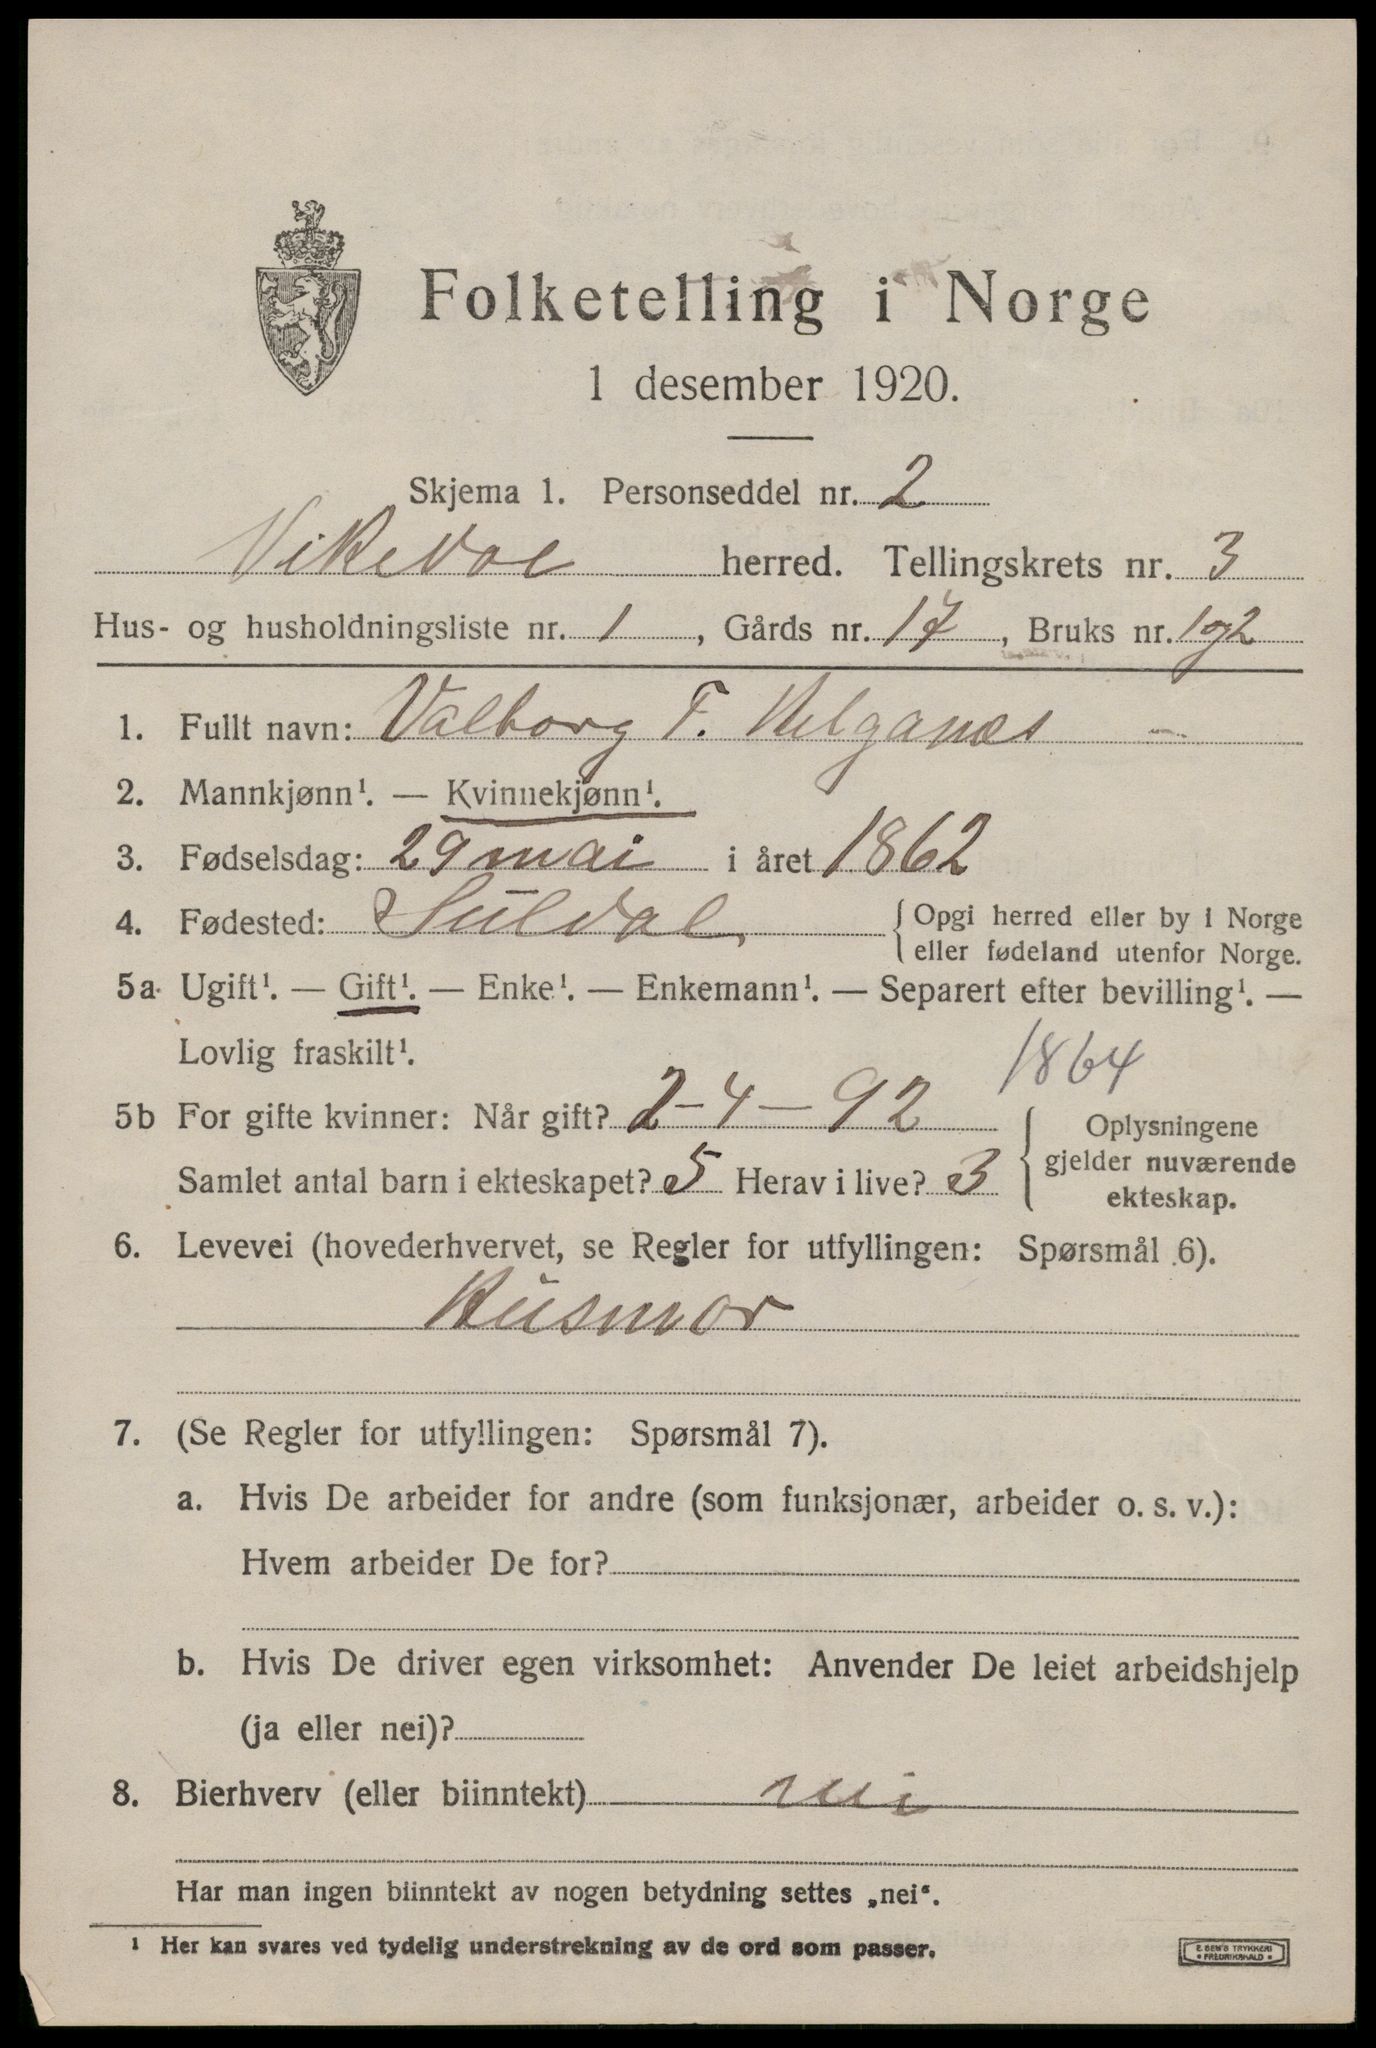 Folketelling i Norge
1 desember 1920.
Skjema 1. Personseddel nr. 2
Vikedal herred. Tellingskrets nr. 3
Hus- og husholdningsliste nr. 1, Gårds nr. 17, Bruks nr. 1og2
1. Fullt navn: Valborg T. Helganes
2. Mannkjønn¹. — Kvinnekjønn¹.
3. Fødselsdag: 29 mai i året 1862
4. Fødested: Suldal, { Opgi herred eller by i Norge
eller fødeland utenfor Norge.
5a Ugift¹. — Gift¹. — Enke¹. — Enkemann¹. — Separert efter bevilling¹. —
Lovlig fraskilt¹.
1864
5b For gifte kvinner: Når gift? 2-4-92
Samlet antal barn i ekteskapet? 5 Herav i live? 3
{ Oplysningene
gjelder nuværende
ekteskap.
6. Levevei (hovederhvervet, se Regler for utfyllingen: Spørsmål 6).
Husmor
7. (Se Regler for utfyllingen: Spørsmål 7).
a. Hvis De arbeider for andre (som funksjonær, arbeider o. s. v.):
Hvem arbeider De for?
b. Hvis De driver egen virksomhet: Anvender De leiet arbeidshjelp
(ja eller nei)?
8. Bierhverv (eller biinntekt) nei
Har man ingen biinntekt av nogen betydning settes „nei“.
¹ Her kan svares ved tydelig understrekning av de ord som passer.
E. SEM'S TRYKKERI
• FREDRIKSHALD •